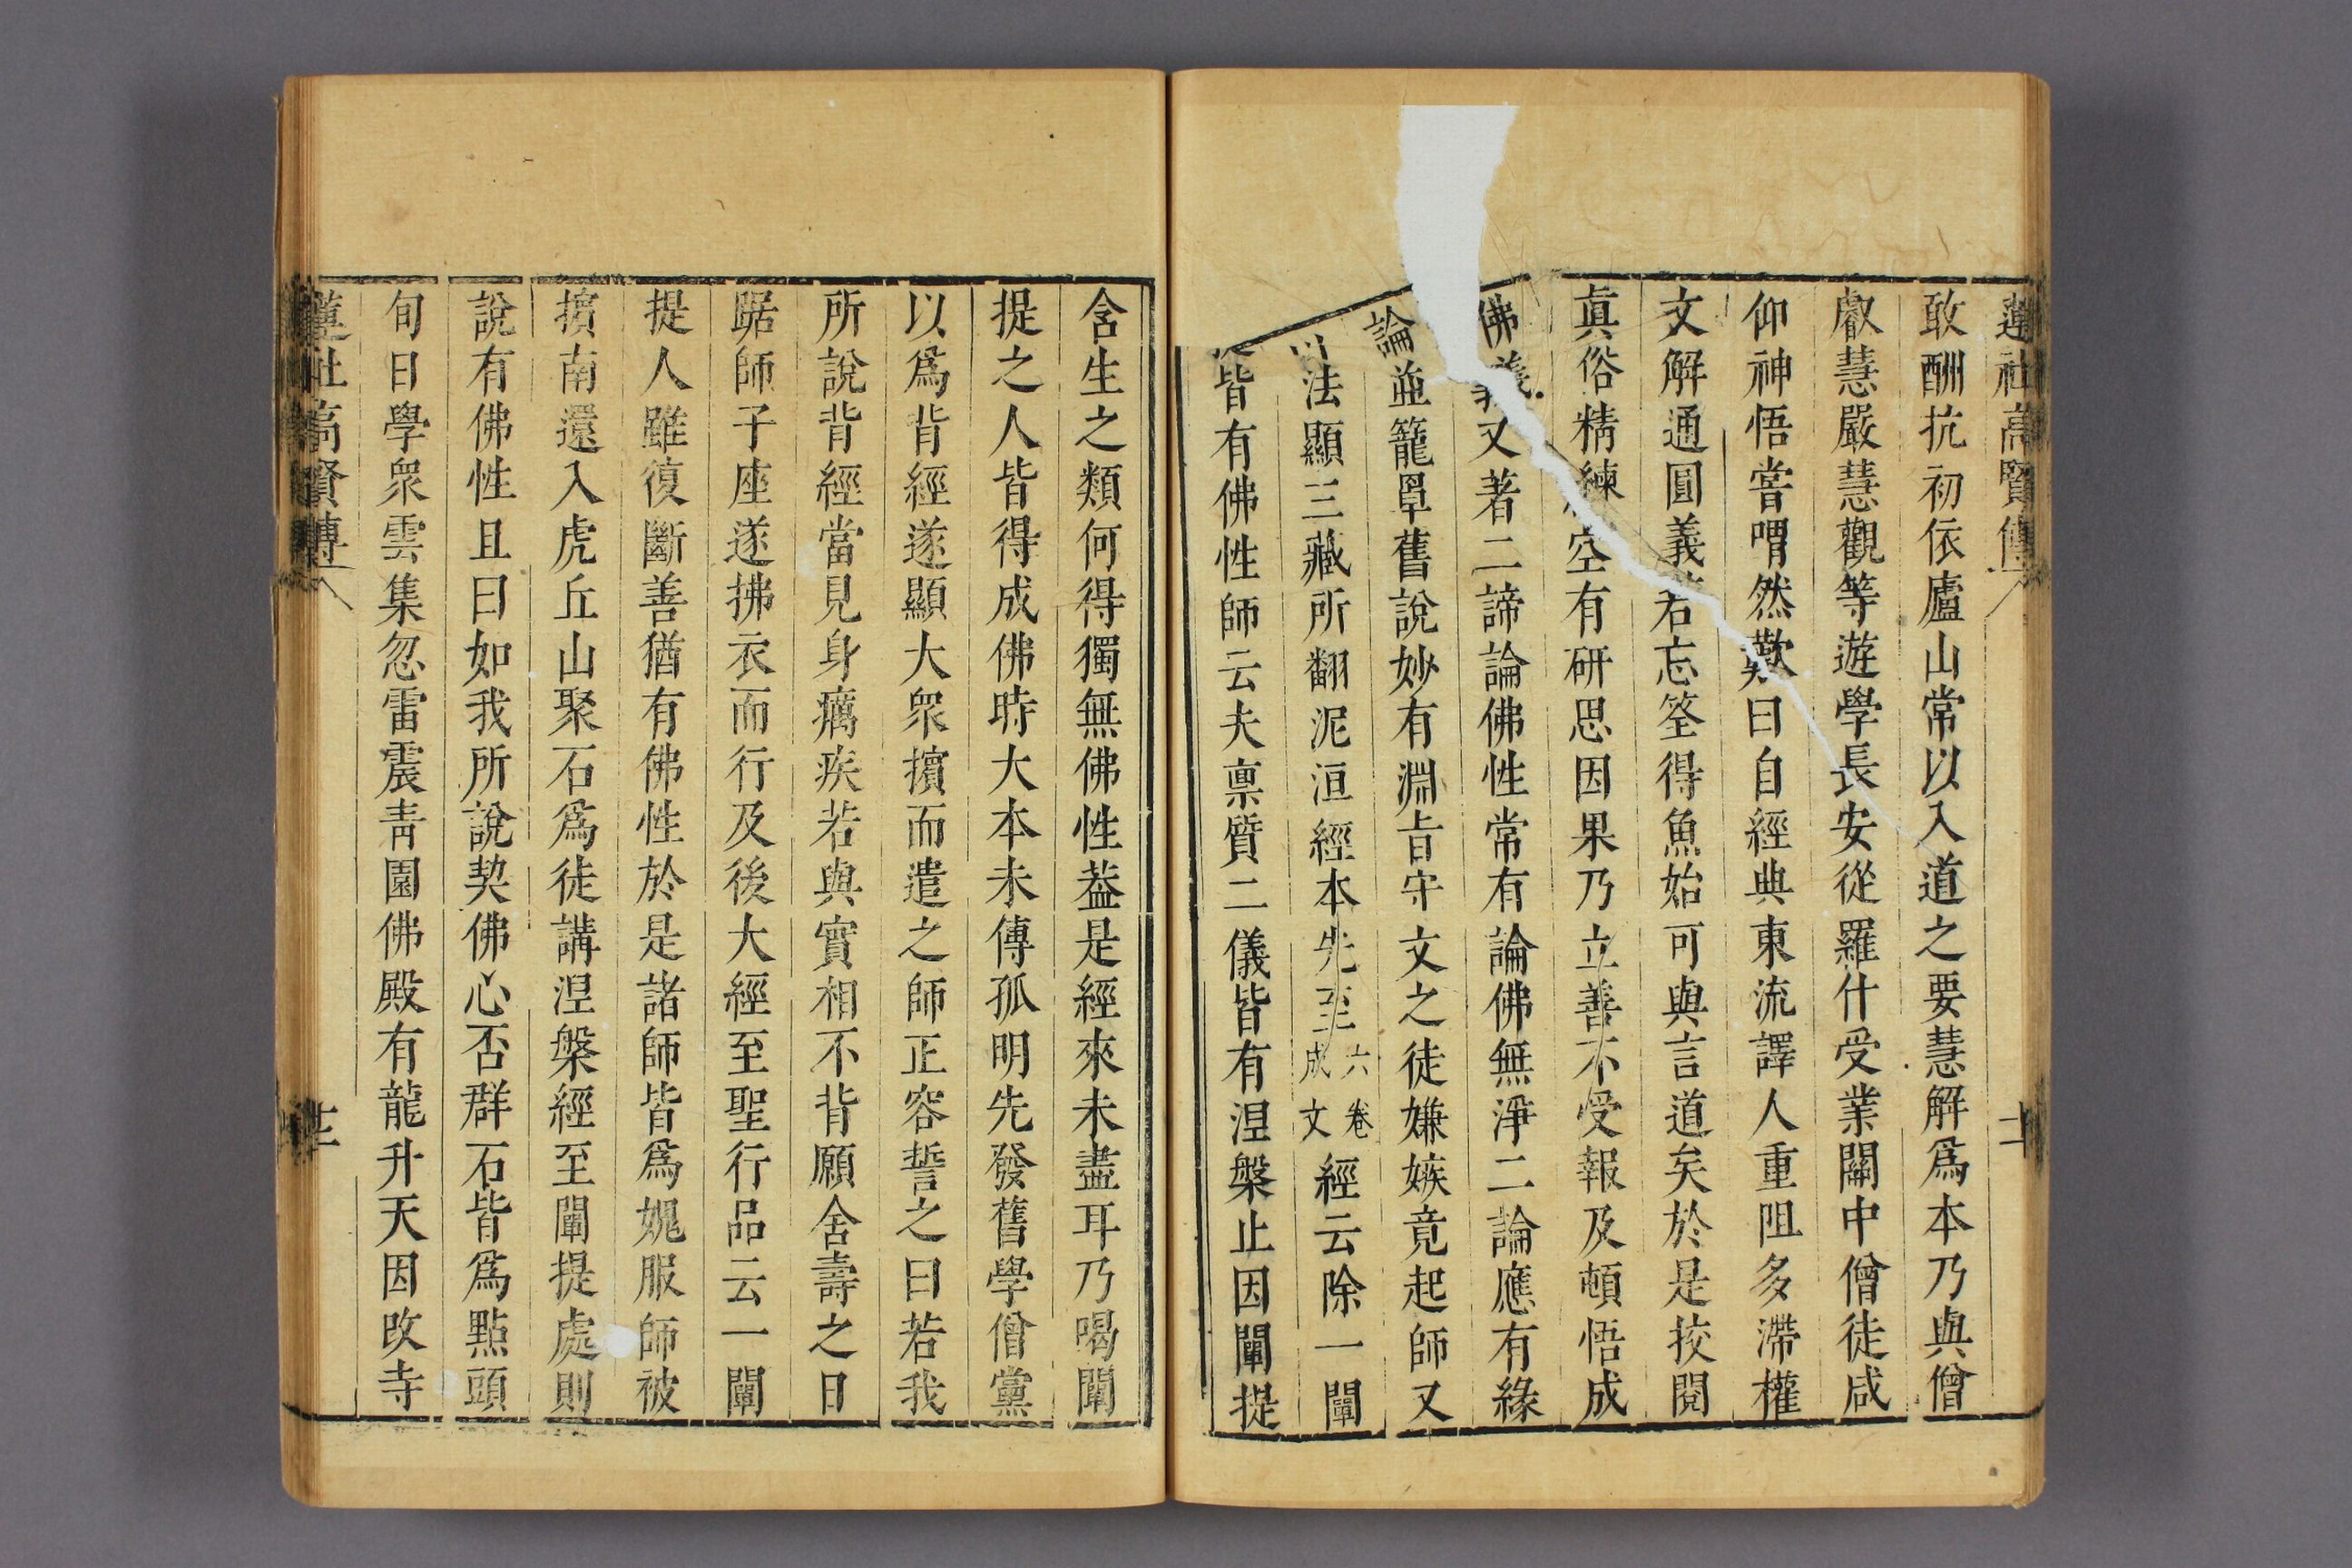 蓮社高賢傳
十二
敢酬抗初依廬山常以入道之要慧解爲本乃與僧
叡慧嚴慧觀等遊學長安從羅什受業關中僧徒咸
仰神悟嘗喟然歎曰自經典東流譯人重阻多滯權
文解通圓義若忘筌得魚始可與言道矣於是挍閱
眞俗精練空有研思因果乃立善不受報及頓悟成
佛義又著二諦論佛性常有論佛無淨二論應有緣
論並籠罩舊說妙有淵旨守文之徒嫌嫉竟起師又
以法顯三藏所翻泥洹經本先至六卷成文經云除一闡
皆有佛性師云夫禀質二儀皆有涅槃止因闡提
含生之類何得獨無佛性葢是經來未盡耳乃喝闡
提之人皆得成佛時大本未傳孤明先發舊學僧黨
以爲背經遂顯大衆擯而遣之師正容誓之曰若我
所說背經當見身癘疾若與實相不背願舍壽之日
踞師子座遂拂衣而行及後大經至聖行品云一闡
提人雖復斷善猶有佛性於是諸師皆爲媿服師被
擯南還入虎丘山聚石爲徒講涅槃經至闡提處則
說有佛性且曰如我所說契佛心否群石皆爲點頭
旬日學衆雲集忽雷震青園佛殿有龍升天因改寺
蓮社高賢傳